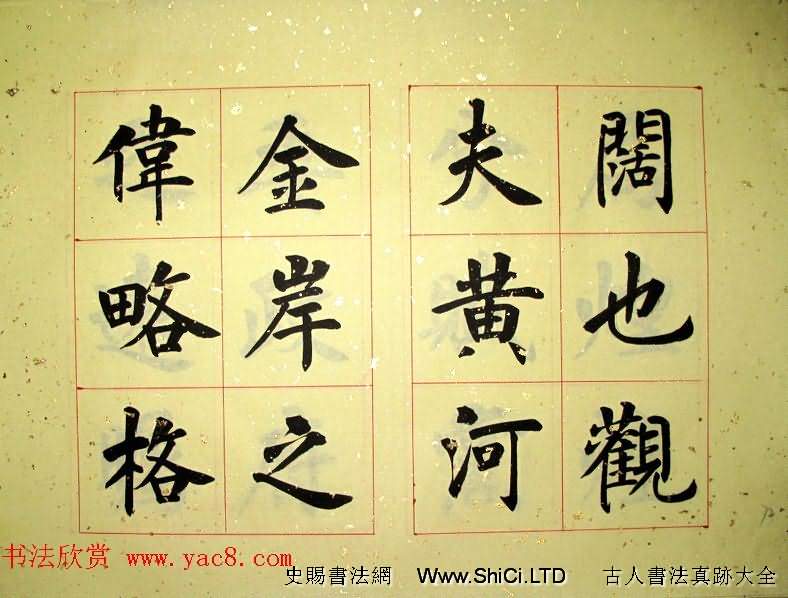 闊也觀
夫黄河
金岸之
偉略格
书法欣赏 www.yac8.com
史賜書法網 Www.ShiCi.LTD 古人書法真跡大全